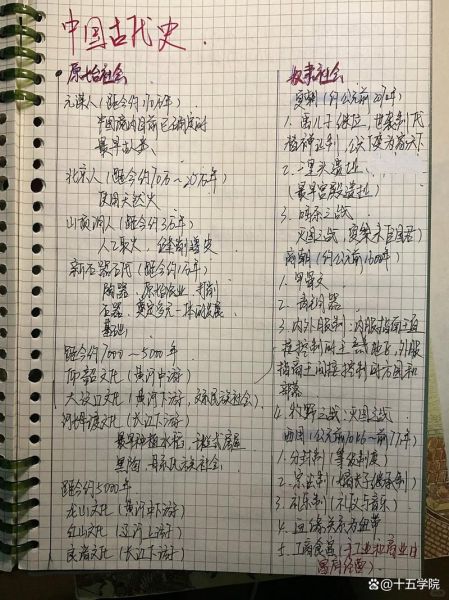 中国古代史.
原始社会
元谋人(距今约170万年)
中国境内目前已确定的
最早的人类
北京人(距今约70万~20万年)
使用天然火
山顶洞人(距今约3万年)
人工取火,
新石器时代(距今约1万年)
陶器、原始农业、
石器、奠定多元一体的发展
基础
距今约7000~5000年
仰韶文化(黄河中游)
大汶口文化(黄河下游,父系氏族社会)
河姆渡文化(长江下游)
最早种植水稻、
黑陶 母系氏族社会
距今约5000年
龙山文化(黄河中下游)
红山文化(辽河上游)
良渚文化(长江下游)
奴隶社会
夏朝(约公元前2070年)
1. 禹儿子继位,世袭制代
替禅让制,公天下变为家天下
2. 二里头遗址
(最早宫殿遗址)
3. 鸣条之战
灭国之战,夏桀亡国君)
商朝(约公元前1600年)
1. 甲骨文
2. 青铜器
3. 内外服制:内服指商王直
接控制的王畿地区,外服
指商王间接控制的方国和
部落
4. 牧野之战:灭国之战
西周(公元前1046~前771年)
1. 分封制(等级制度)
2. 宗法制(嫡长子继承制)
3. 礼乐制(礼仪与音乐)
4. 血缘关系为纽带
5. 工商食官(手工业和商业由
官府经营)
@十五学院